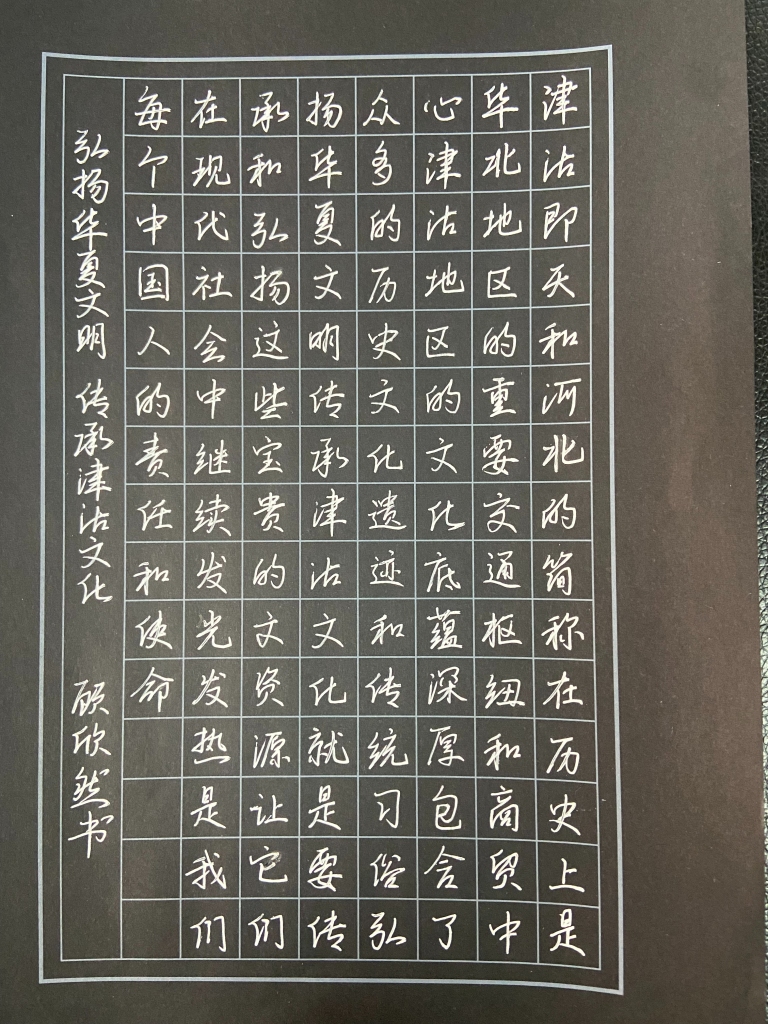 津沽即天和河北的简称在历史上是
华北地区的重要交通枢纽和商贸中
心津沽地区的文化底蕴深厚包含了
众多的历史文化遗迹和传统习俗弘
扬华夏文明传承津沽文化就是要传
承和弘扬这些宝贵的文资源让它们
在现代社会中继续发光发热是我们
每个中国人的责任和使命
弘扬华夏文明 传承津沽文化 顾欣然书